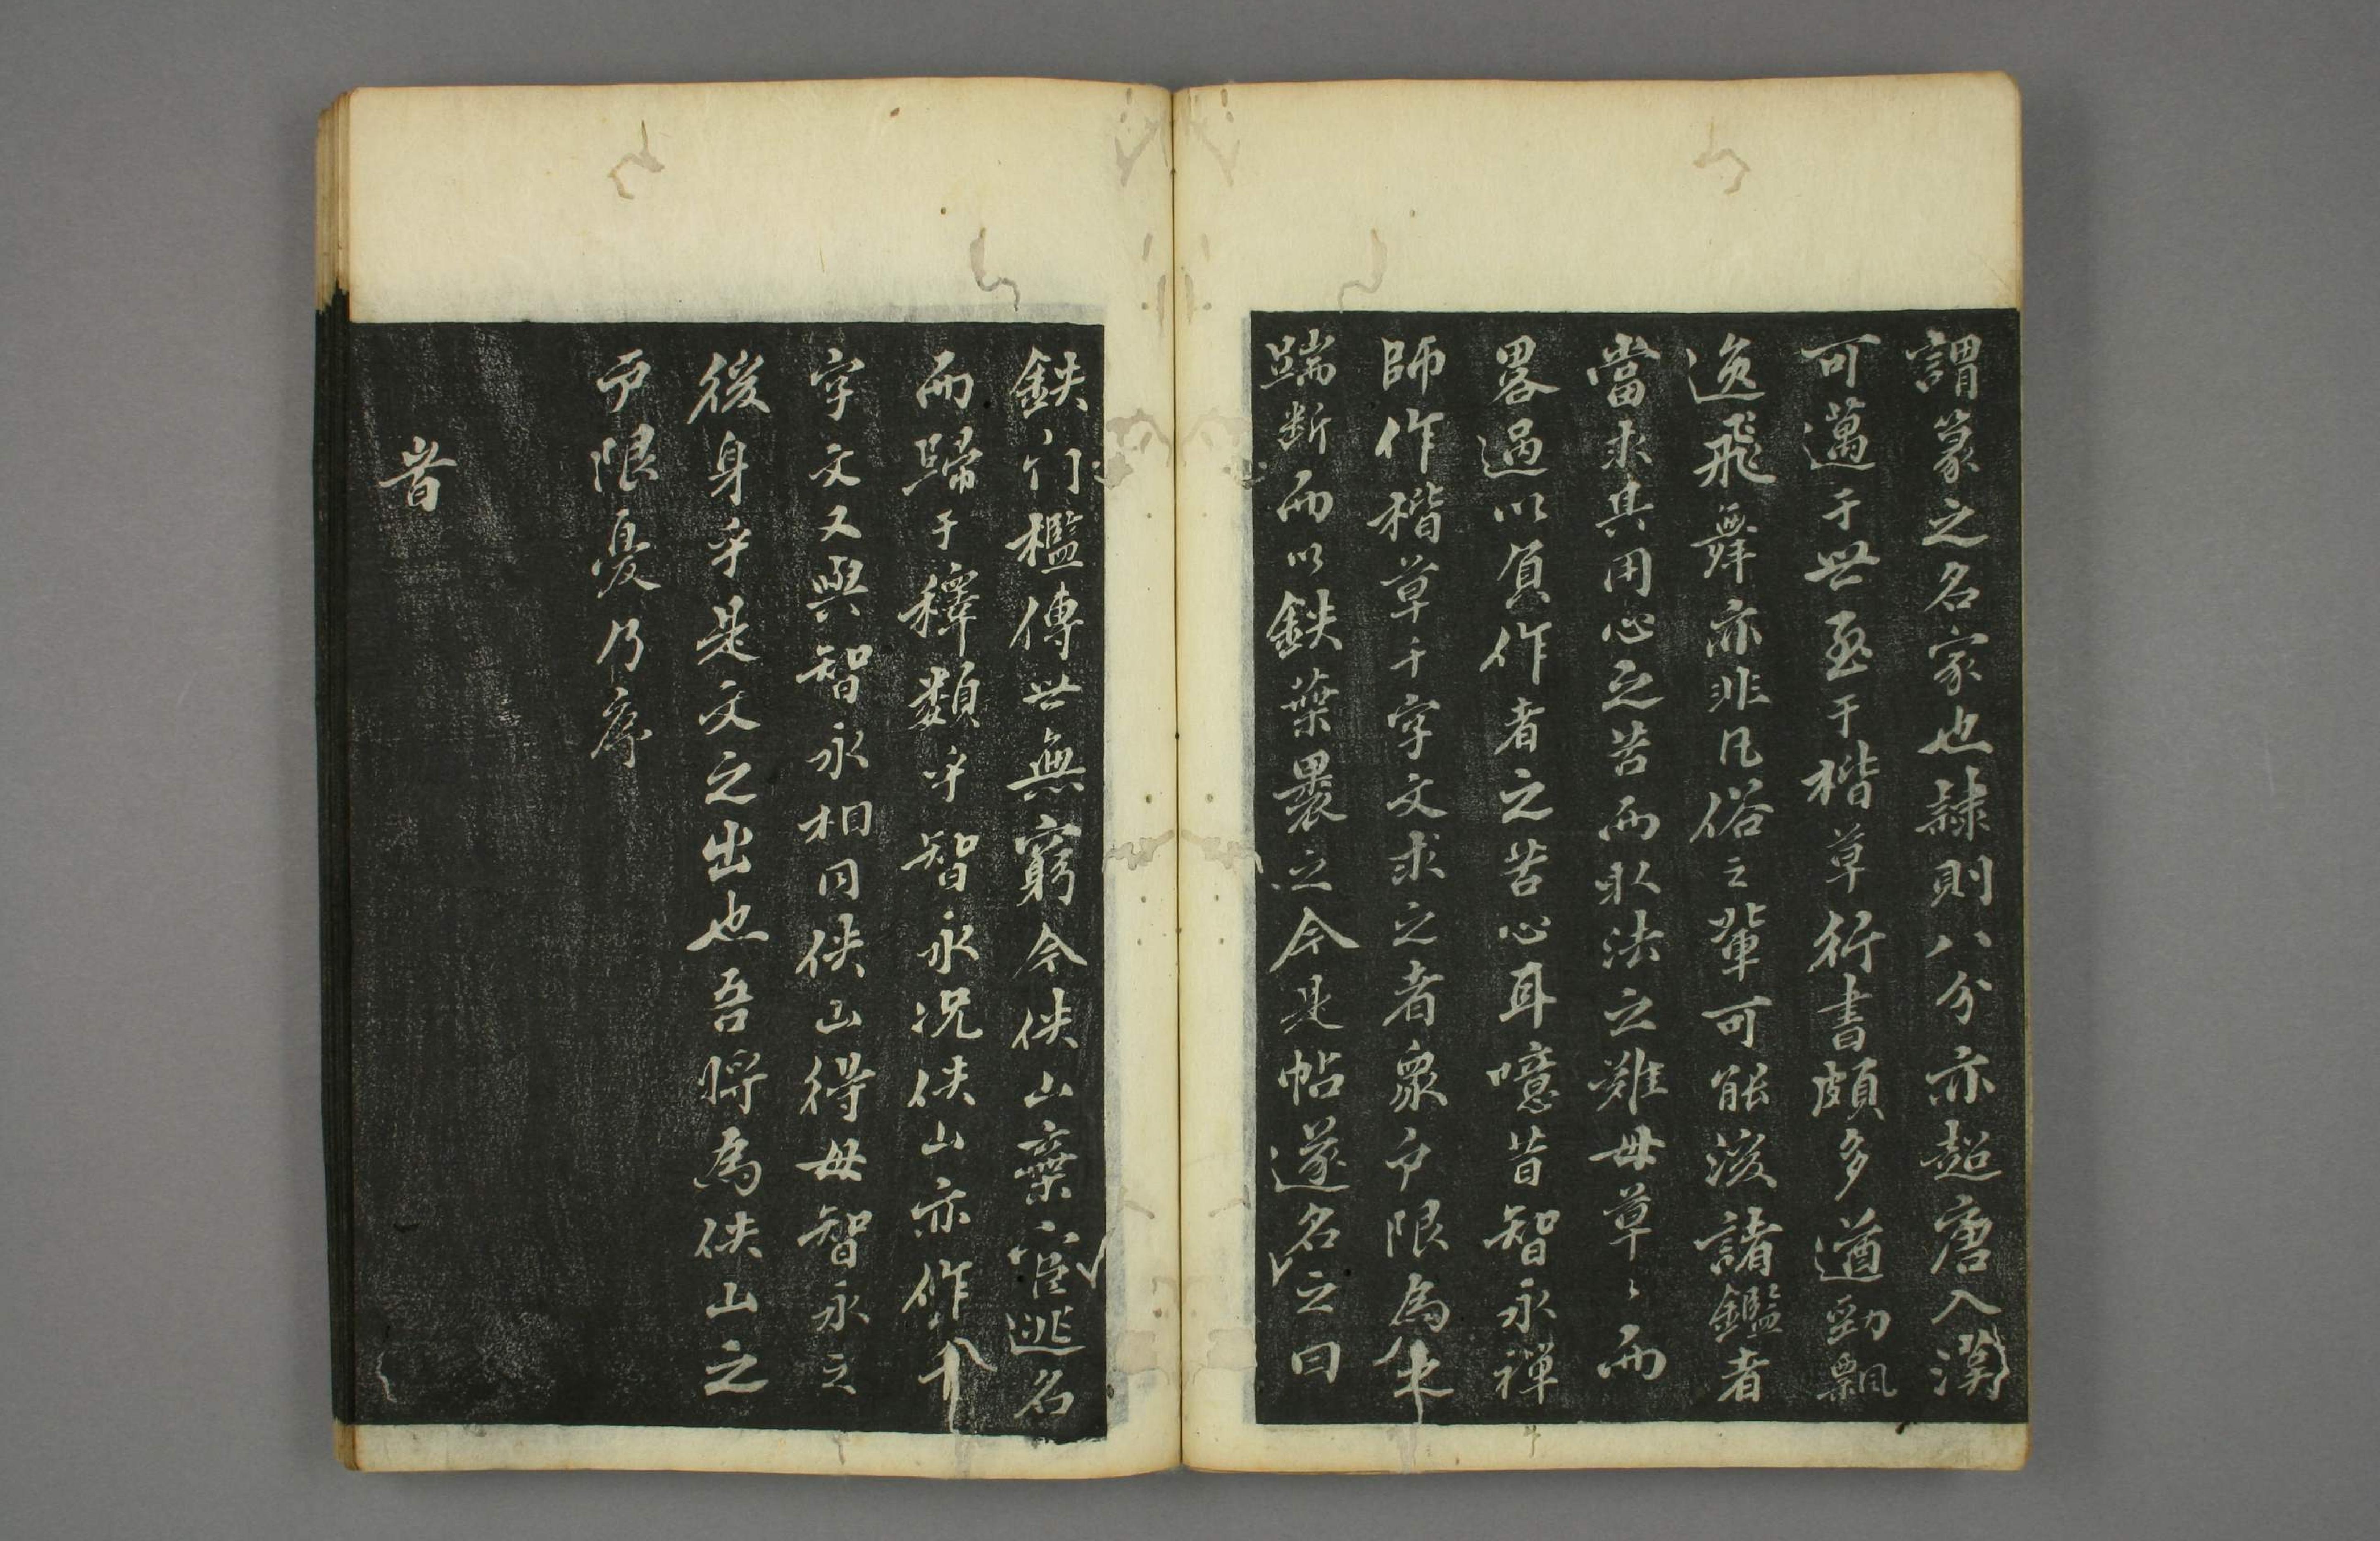 謂篆之名家也隷則八分亦超唐入漢
可邁于世至于楷草行書頗多遒勁飄
逸飛舞亦非凡俗之輩可能涘諸鑑者
當求其用心之苦而㕥法之難毋草〻而
畧過以負作者之苦心耳噫昔智永禪
師作楷草千字文求之者衆戶限為
踹断而以鉄葉褁之今是帖遂名之曰
鉄門檻傳世無窮今佚山棄官逃名
而歸于釋類乎智永况佚山亦作千
字文又與智永相同佚山得毋智永之
後身乎是文之出也吾將為佚山之
戶限憂乃序